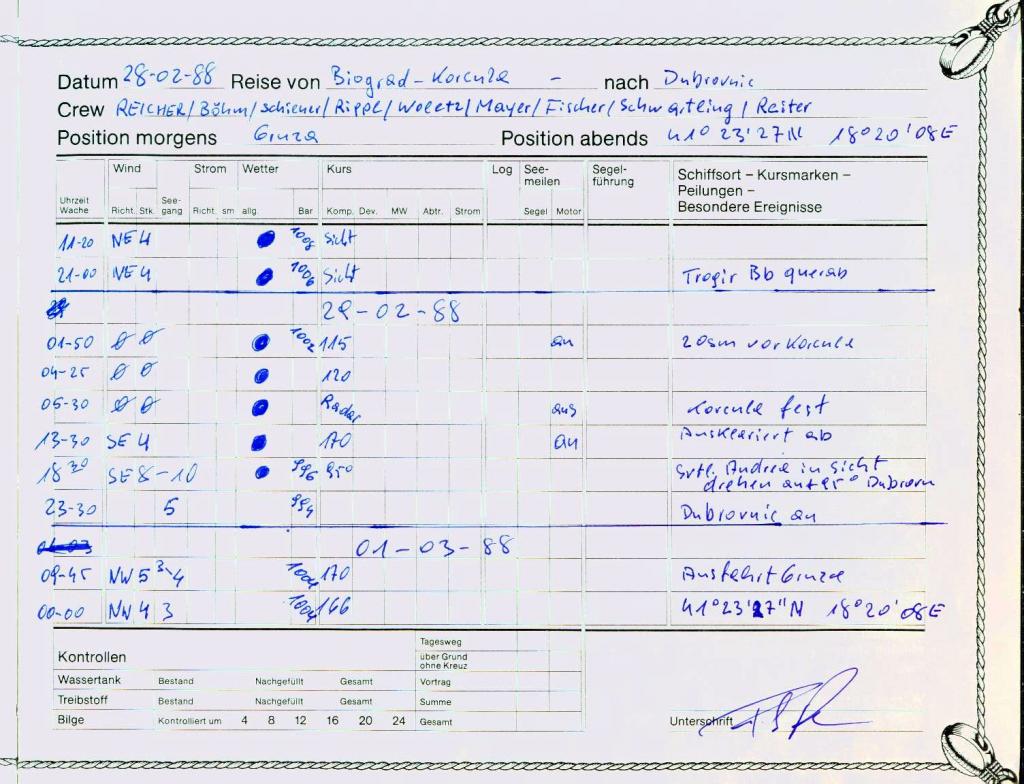 Datum 28-02-88 Reise von Biograd – Korcula – nach Dubrovnic
Crew REICHER/Böhm/Schiener/Rippl/Woletz/Mayer/Fischer/Schwartling/Reiter
Position morgens Gruza Position abends 41° 23'27 N 18°20'08E
Wind Strom Wetter Kurs Log See-meilen Segel-führung Schiffsort – Kursmarken – Peilungen – Besondere Ereignisse
Uhrzeit Wache Richt. Stk. See-gang Richt. sm allg. Bar Komp. Dev. MW Abtr. Strom Segel Motor
11-20 NE 4 1006 Sicht
21-00 NE 4 1006 Sicht Trogir Bb querab
29-02-88
01-50 Ø Ø 1002 115 an 20sm vor Korcula
04-25 Ø Ø 120
05-30 Ø Ø Radar aus Korcula fest
13-30 SE 4 170 an Ausklariert ab
18 30 SE 8-10 996 950 Andrea in Sicht
drehen auf 85° Dubrovn
23-30 5 994 Dubrovnic an
01-03-88
09-45 NW 5 3-4 1004 170 Ausfahrt Gruza
00-00 NW 4 3 1004 166 41°23'27"N 18°20'08E
Kontrollen Tagesweg über Grund ohne Kreuz
Wassertank Bestand Nachgefüllt Gesamt Vortrag
Treibstoff Bestand Nachgefüllt Gesamt Summe
Bilge Kontrolliert um 4 8 12 16 20 24 Gesamt
Unterschrift